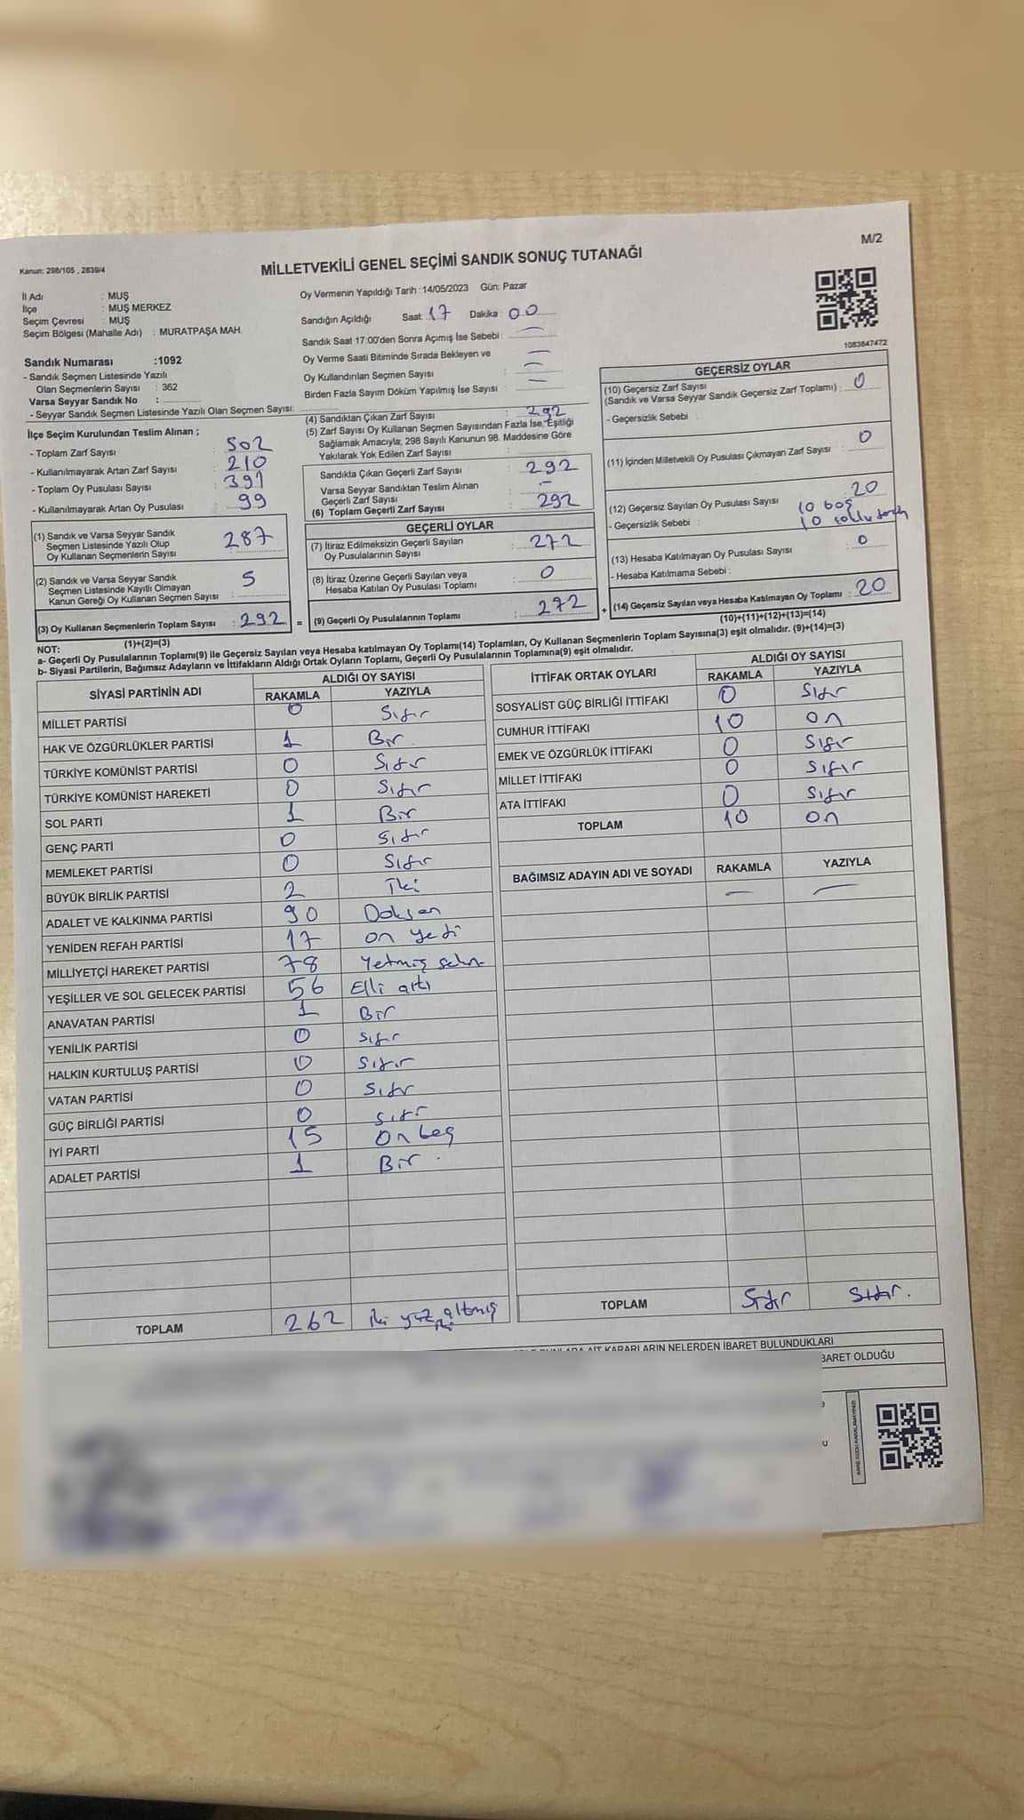 M/2
Kanun: 298/105 , 2839/4
MİLLETVEKİLİ GENEL SEÇİMİ SANDIK SONUÇ TUTANAĞI
İl Adı : MUŞ
İlçe : MUŞ MERKEZ
Seçim Çevresi : MUŞ
Seçim Bölgesi (Mahalle Adı) : MURATPAŞA MAH.
Sandık Numarası :1092
- Sandık Seçmen Listesinde Yazılı
Olan Seçmenlerin Sayısı : 362
Varsa Seyyar Sandık No :
- Seyyar Sandık Seçmen Listesinde Yazılı Olan Seçmen Sayısı:
Oy Vermenin Yapıldığı Tarih :14/05/2023 Gün: Pazar
Sandığın Açıldığı Saat: 17 Dakika: 00
Sandık Saat 17:00'den Sonra Açımış İse Sebebi :
Oy Verme Saati Bitiminde Sırada Bekleyen ve
Oy Kullandırılan Seçmen Sayısı :
Birden Fazla Sayım Döküm Yapılmış İse Sayısı :
1083847472
İlçe Seçim Kurulundan Teslim Alınan ;
- Toplam Zarf Sayısı : 502
- Kullanılmayarak Artan Zarf Sayısı : 210
- Toplam Oy Pusulası Sayısı : 391
- Kullanılmayarak Artan Oy Pusulası : 99
(1) Sandık ve Varsa Seyyar Sandık
Seçmen Listesinde Yazılı Olup
Oy Kullanan Seçmenlerin Sayısı : 287
(2) Sandık ve Varsa Seyyar Sandık
Seçmen Listesinde Kayıtlı Olmayan
Kanun Gereği Oy Kullanan Seçmen Sayısı : 5
(3) Oy Kullanan Seçmenlerin Toplam Sayısı : 292
(1)+(2)=(3)
(4) Sandıktan Çıkan Zarf Sayısı : 292
(5) Zarf Sayısı Oy Kullanan Seçmen Sayısından Fazla İse, Eşitliği
Sağlamak Amacıyla, 298 Sayılı Kanunun 98. Maddesine Göre
Yakılarak Yok Edilen Zarf Sayısı :
Sandıkta Çıkan Geçerli Zarf Sayısı : 292
Varsa Seyyar Sandıktan Teslim Alınan
Geçerli Zarf Sayısı : -
(6) Toplam Geçerli Zarf Sayısı : 292
GEÇERLİ OYLAR
(7) İtiraz Edilmeksizin Geçerli Sayılan
Oy Pusulalarının Sayısı : 272
(8) İtiraz Üzerine Geçerli Sayılan veya
Hesaba Katılan Oy Pusulası Toplamı : 0
= (9) Geçerli Oy Pusulalarının Toplamı : 272 +
GEÇERSİZ OYLAR
(10) Geçersiz Zarf Sayısı : 0
(Sandık ve Varsa Seyyar Sandık Geçersiz Zarf Toplamı)
- Geçersizlik Sebebi :
(11) İçinden Milletvekili Oy Pusulası Çıkmayan Zarf Sayısı : 0
(12) Geçersiz Sayılan Oy Pusulası Sayısı : 20
- Geçersizlik Sebebi : 10 boş
10
(13) Hesaba Katılmayan Oy Pusulası Sayısı : 0
- Hesaba Katılmama Sebebi :
(14) Geçersiz Sayılan veya Hesaba Katılmayan Oy Toplamı : 20
(10)+(11)+(12)+(13)=(14)
NOT:
a- Geçerli Oy Pusulalarının Toplamı(9) ile Geçersiz Sayılan veya Hesaba katılmayan Oy Toplamı(14) Toplamları, Oy Kullanan Seçmenlerin Toplam Sayısına(3) eşit olmalıdır. (9)+(14)=(3)
b- Siyasi Partilerin, Bağımsız Adayların ve İttifakların Aldığı Ortak Oyların Toplamı, Geçerli Oy Pusulalarının Toplamına(9) eşit olmalıdır.
SİYASİ PARTİNİN ADI ALDIĞI OY SAYISI
RAKAMLA YAZIYLA
MİLLET PARTİSİ 0 Sıfır
HAK VE ÖZGÜRLÜKLER PARTİSİ 1 Bir
TÜRKİYE KOMÜNİST PARTİSİ 0 Sıfır
TÜRKİYE KOMÜNİST HAREKETİ 0 Sıfır
SOL PARTİ 1 Bir
GENÇ PARTİ 0 Sıfır
MEMLEKET PARTİSİ 0 Sıfır
BÜYÜK BİRLİK PARTİSİ 2 İki
ADALET VE KALKINMA PARTİSİ 90 Doksan
YENİDEN REFAH PARTİSİ 17 on yedi
MİLLİYETÇİ HAREKET PARTİSİ 78 Yetmiş
YEŞİLLER VE SOL GELECEK PARTİSİ 56 Elli altı
ANAVATAN PARTİSİ 1 Bir
YENİLİK PARTİSİ 0 Sıfır
HALKIN KURTULUŞ PARTİSİ 0 Sıfır
VATAN PARTİSİ 0 Sıfır
GÜÇ BİRLİĞİ PARTİSİ 0 Sıfır
İYİ PARTİ 15 on beş
ADALET PARTİSİ 1 Bir.
TOPLAM 262 iki yüz altmış
iki
İTTİFAK ORTAK OYLARI ALDIĞI OY SAYISI
RAKAMLA YAZIYLA
SOSYALİST GÜÇ BİRLİĞİ İTTİFAKI 0 Sıfır
CUMHUR İTTİFAKI 10 on
EMEK VE ÖZGÜRLÜK İTTİFAKI 0 Sıfır
MİLLET İTTİFAKI 0 Sıfır
ATA İTTİFAKI 0 Sıfır
TOPLAM 10 on
BAĞIMSIZ ADAYIN ADI VE SOYADI RAKAMLA YAZIYLA
— —
TOPLAM Sıfır Sıfır.
AİT KARARLARIN NELERDEN İBARET BULUNDUKLARI
BARET OLDUĞU